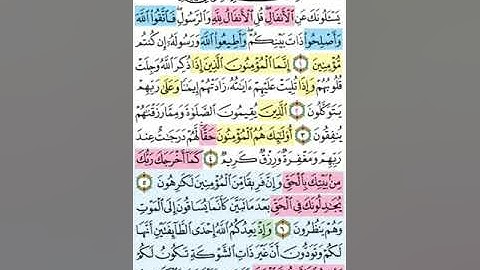 يَسْـَٔلُونَكَ عَنِ ٱلْأَنفَالِ ۖ قُلِ ٱلْأَنفَالُ لِلَّهِ وَٱلرَّسُولِ ۖ فَٱتَّقُوا۟ ٱللَّهَ
وَأَصْلِحُوا۟ ذَاتَ بَيْنِكُمْ ۖ وَأَطِيعُوا۟ ٱللَّهَ وَرَسُولَهُۥٓ إِن كُنتُم
مُّؤْمِنِينَ ١ إِنَّمَا ٱلْمُؤْمِنُونَ ٱلَّذِينَ إِذَا ذُكِرَ ٱللَّهُ وَجِلَتْ
قُلُوبُهُمْ وَإِذَا تُلِيَتْ عَلَيْهِمْ ءَايَٰتُهُۥ زَادَتْهُمْ إِيمَٰنًا وَعَلَىٰ رَبِّهِمْ
يَتَوَكَّلُونَ ٢ ٱلَّذِينَ يُقِيمُونَ ٱلصَّلَوٰةَ وَمِمَّا رَزَقْنَٰهُمْ
يُنفِقُونَ ٣ أُو۟لَٰٓئِكَ هُمُ ٱلْمُؤْمِنُونَ حَقًّا ۚ لَّهُمْ دَرَجَٰتٌ عِندَ
رَبِّهِمْ وَمَغْفِرَةٌ وَرِزْقٌ كَرِيمٌ ٤ كَمَآ أَخْرَجَكَ رَبُّكَ
مِنۢ بَيْتِكَ بِٱلْحَقِّ وَإِنَّ فَرِيقًا مِّنَ ٱلْمُؤْمِنِينَ لَكَٰرِهُونَ ٥
يُجَٰدِلُونَكَ فِى ٱلْحَقِّ بَعْدَ مَا تَبَيَّنَ كَأَنَّمَا يُسَاقُونَ إِلَى ٱلْمَوْتِ
وَهُمْ يَنظُرُونَ ٦ وَإِذْ يَعِدُكُمُ ٱللَّهُ إِحْدَى ٱلطَّآئِفَتَيْنِ أَنَّهَا
لَكُمْ وَتَوَدُّونَ أَنَّ غَيْرَ ذَاتِ ٱلشَّوْكَةِ تَكُونُ لَكُمْ